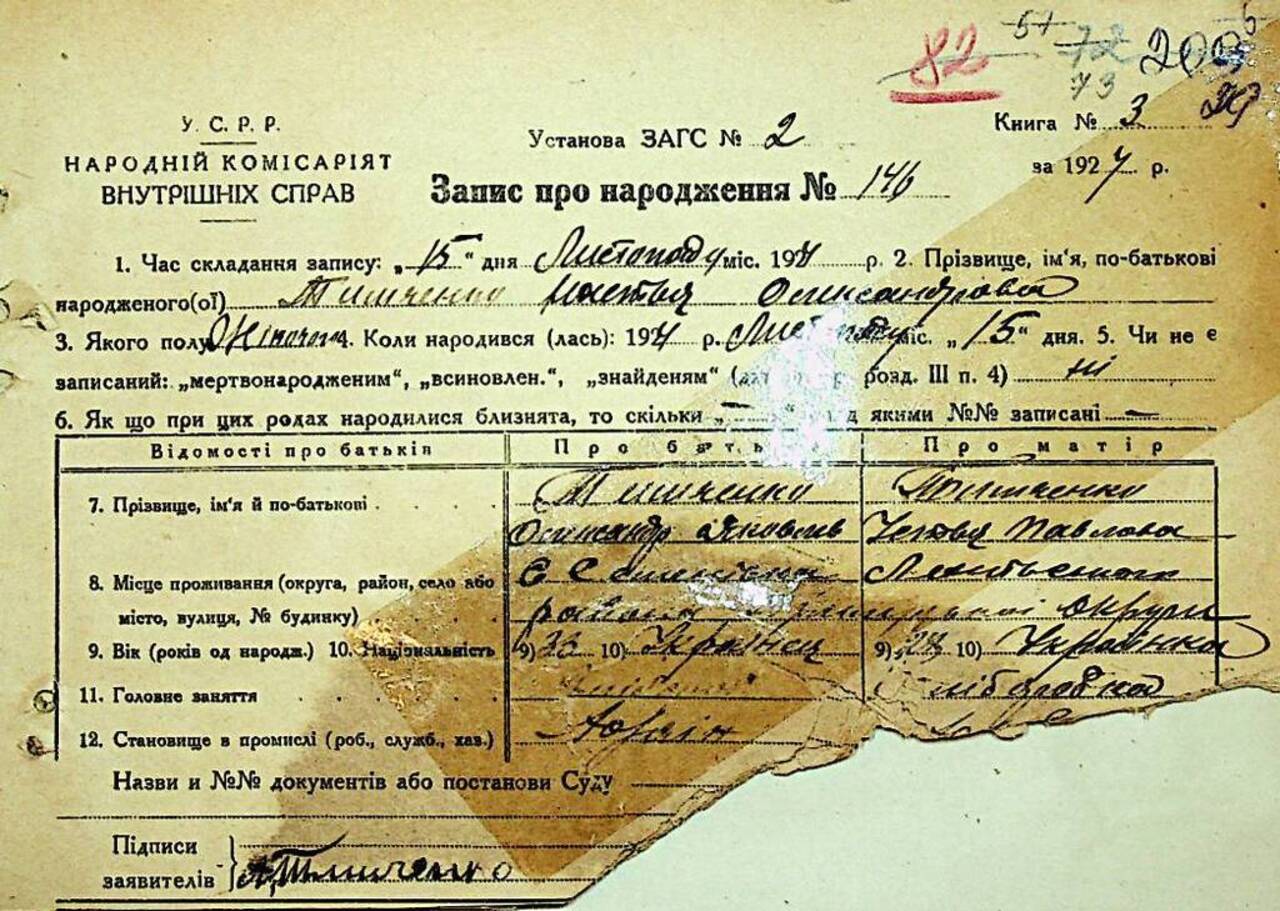 82 51 72 200
73
У. С. Р. Р.
НАРОДНІЙ КОМІСАРІЯТ
ВНУТРІШНІХ СПРАВ
Установа ЗАГС № 2
Книга № 3
за 1927 р.
Запис про народження № 146
1. Час складання запису: „15“ дня Листопаду міс. 1927 р. 2. Прізвище, ім'я, по-батькові
народженого(ої) Тимченко Олександровна
3. Якого полу Жіночого 4. Коли народився (лась): 1927 р. Листопаду міс. „15“ дня. 5. Чи не є
записаний: „мертвонародженим“, „всиновлен.“, „знайденям“ розд. III п. 4) ні
6. Як що при цих родах народилися близнята, то скільки „—“ якими №№ записані —
Відомості про батьків Про батька Про матір
7. Прізвище, ім'я й по-батькові . . . . Тимченко Тимченко
Олександр Яковлев Павлова
8. Місце проживання (округа, район, село або
місто, вулиця, № будинку) района округи
9. Вік (років од народж.) 10. Національність 9) 33 10) Українец 9) 28 10) Українка
11. Головне заняття . . . . Хліборобка
12. Становище в промислі (роб., служб., хаз.)
Назви и №№ документів або постанови Суду
Підписи
заявителів А. Тимченко